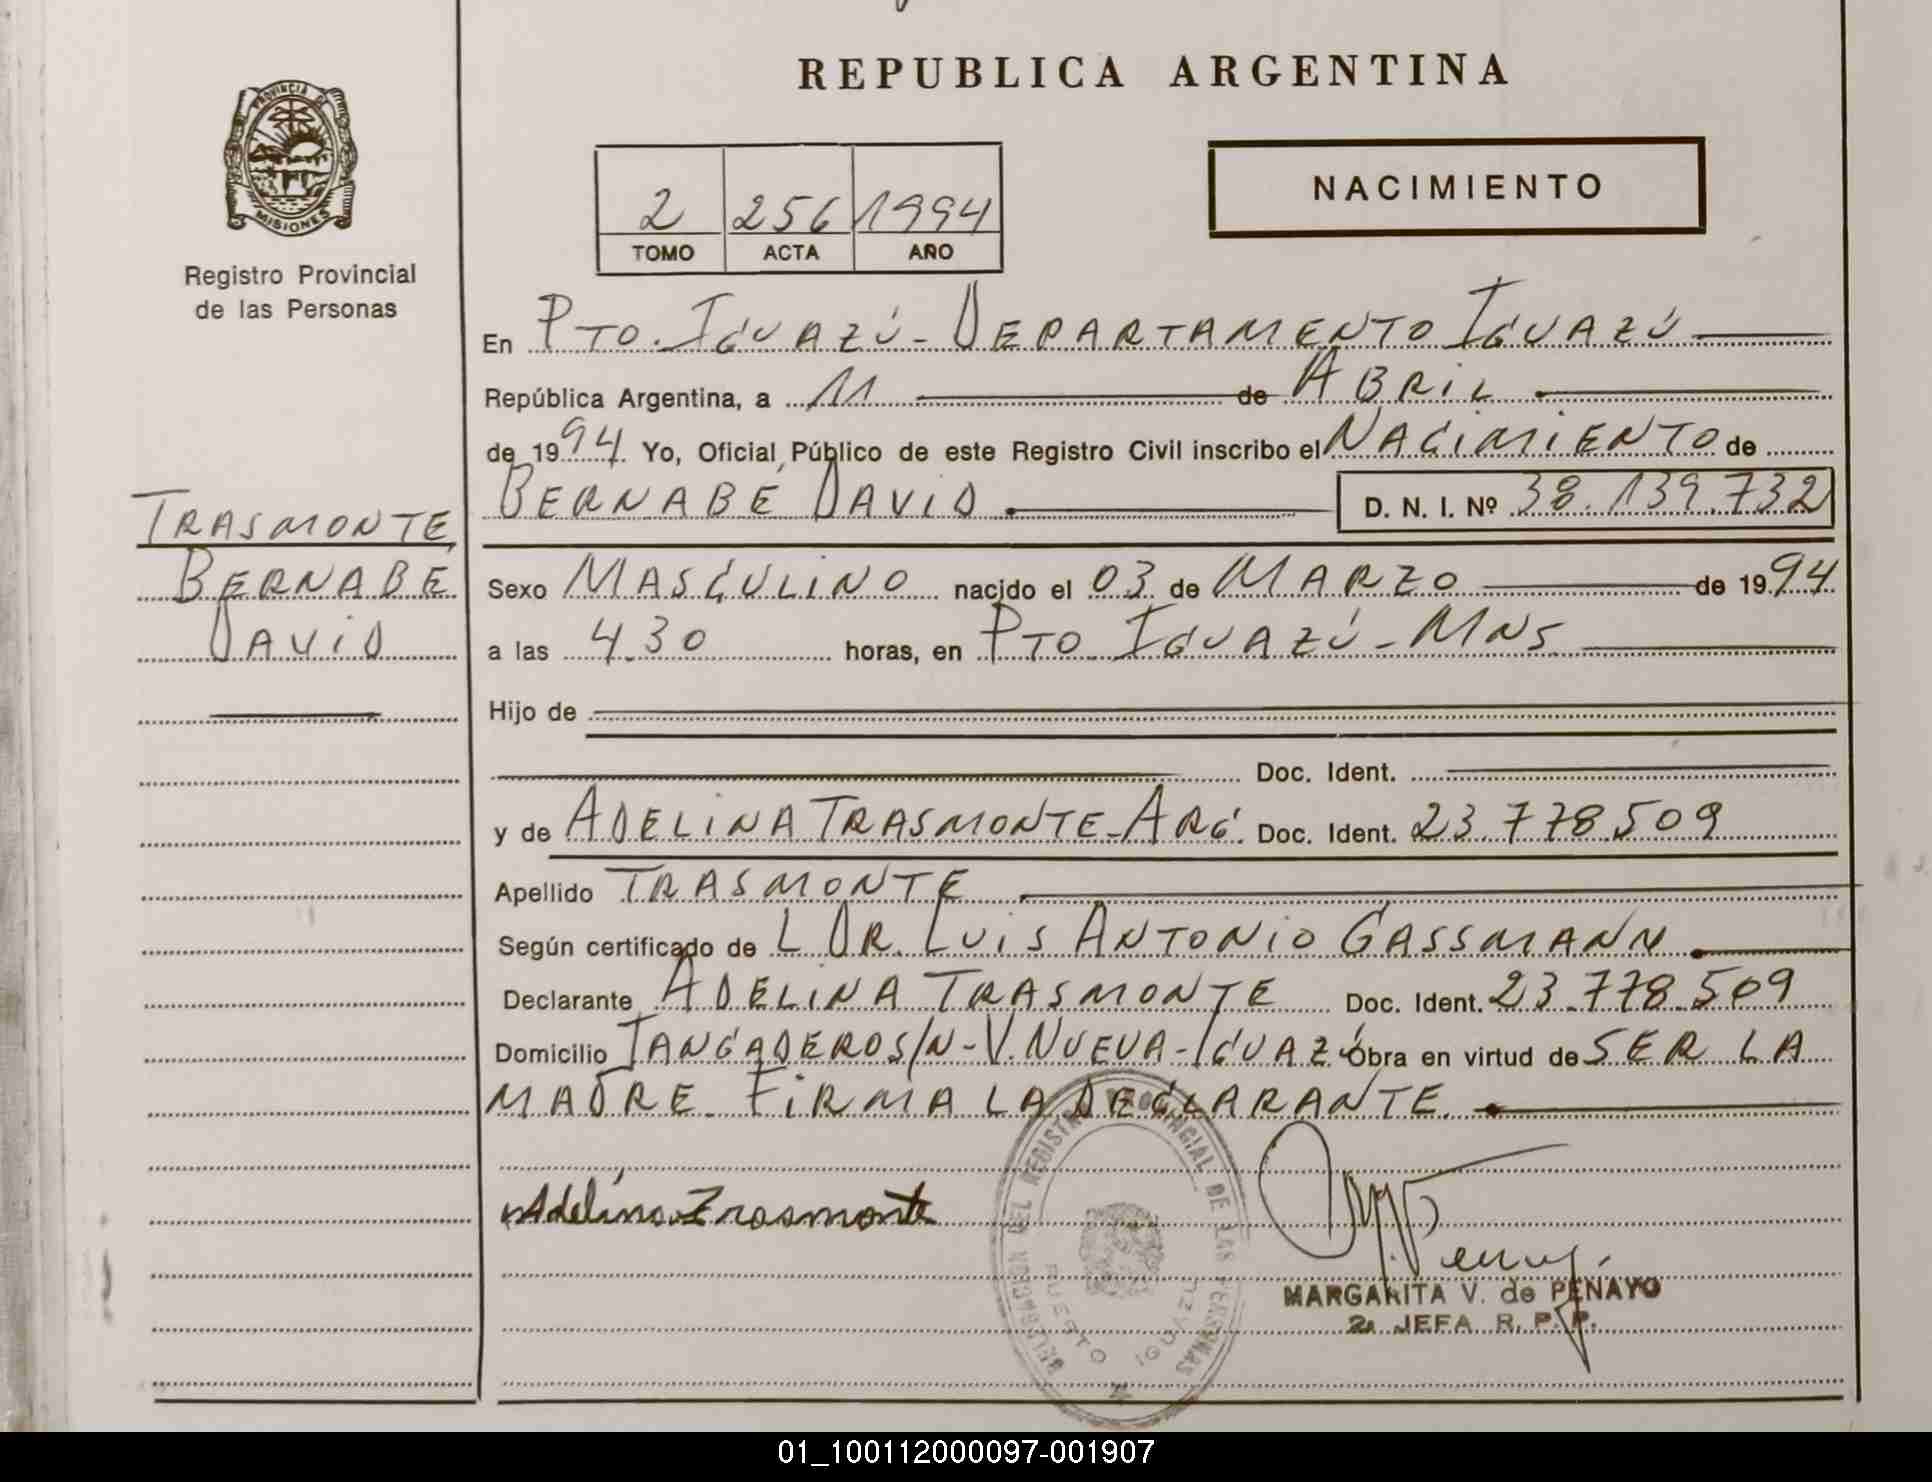 REPUBLICA ARGENTINA
PROVINCIA DE
MISIONES
Registro Provincial
de las Personas
2 256 1994
TOMO ACTA AÑO
NACIMIENTO
En PTO. IGUAZÚ - DEPARTAMENTO IGUAZÚ
República Argentina, a 11 de ABRIL
de 1994 Yo, Oficial Público de este Registro Civil inscribo el NACIMIENTO de
BERNABE DAVID D. N. I. Nº 38.139.732
TRASMONTE,
BERNABE
DAVID
Sexo MASCULINO nacido el 03 de MARZO de 1994
a las 4.30 horas, en PTO. IGUAZÚ - MNS.
Hijo de
Doc. Ident.
y de ADELINA TRASMONTE - ARG. Doc. Ident. 23.778.509
Apellido TRASMONTE
Según certificado de L DR. LUIS ANTONIO GASSMANN
Declarante ADELINA TRASMONTE Doc. Ident. 23.778.509
Domicilio TANGADEROS/N - V. NUEVA - IGUAZÚ Obra en virtud de SER LA
MADRE. FIRMA LA DECLARANTE.
Adelina Trasmonte
DELEGACION DEL REGISTRO PROVINCIAL DE LAS PERSONAS
PUERTO IGUAZU
MARGARITA V. de PENAYO
2a JEFA R. P. P.
01_100112000097-001907